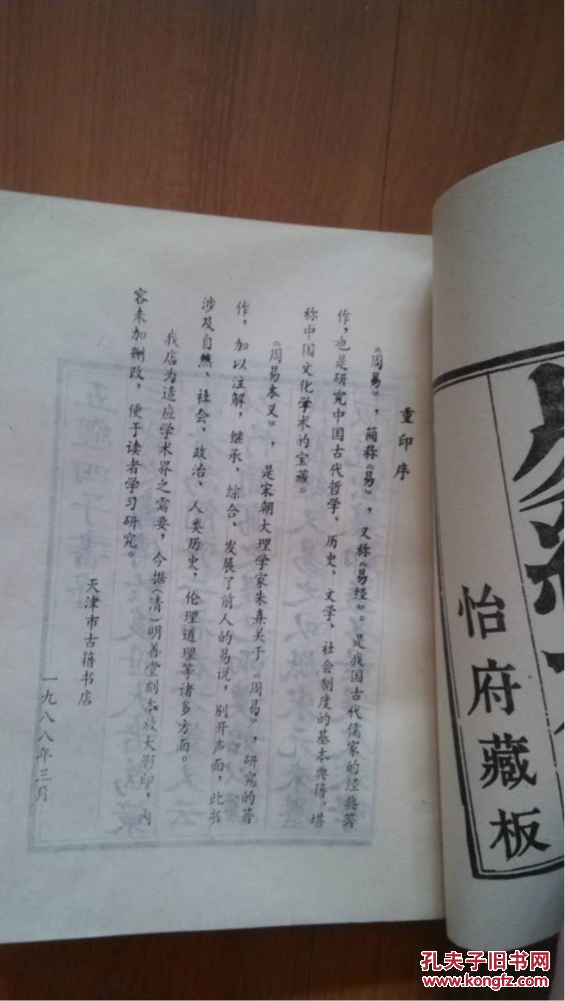 重印序
《周易》，简称《易》，又称《易经》。是我国古代儒家的经典著
作，也是研究中国古代哲学、历史、文学、社会制度的基本典籍，堪
称中国文化学术的宝藏。
《周易本义》，是宋朝大理学家朱熹关于《周易》，研究的著
作，加以注解，继承、综合、发展了前人的易说，别开声面，此书
涉及自然、社会、政治、人类历史，伦理道理等诸多方面。
我店为适应学术界之需要，今据（清）明善堂刻本放大影印，内
容未加删改，便于读者学习研究。
天津市古籍书店
一九八八年三月
怡府藏板
孔夫子旧书网
kongfz.com